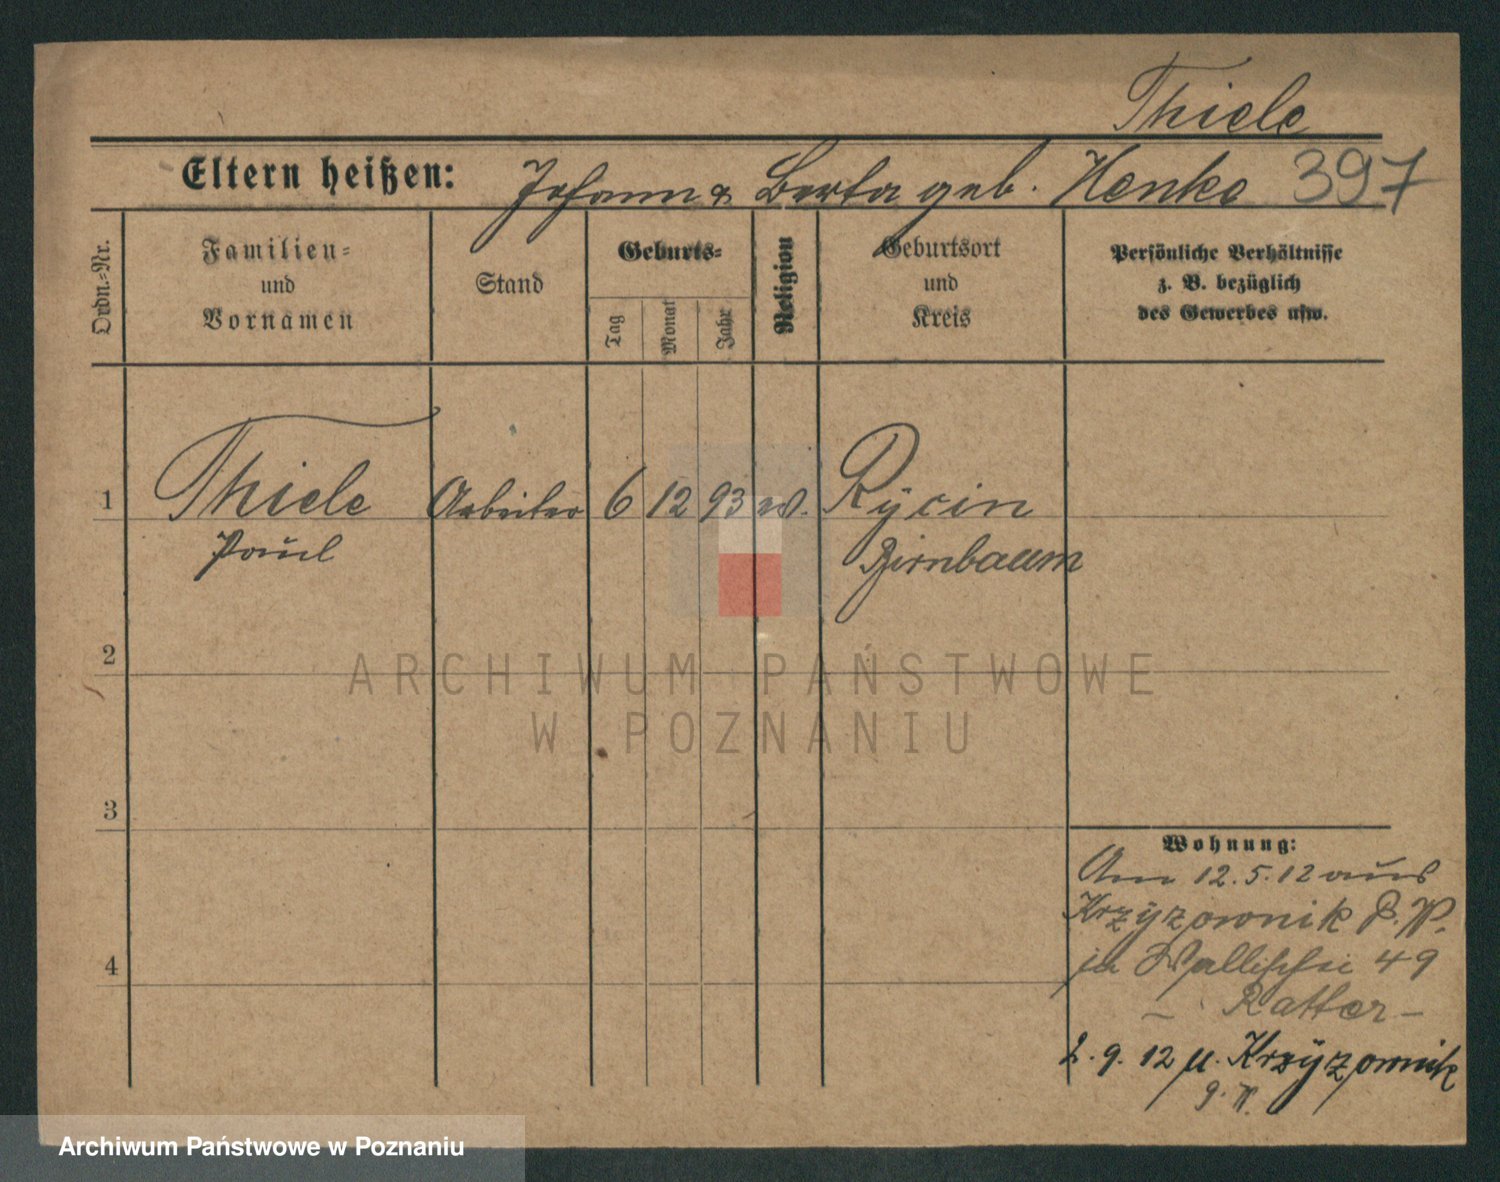 Thiele
Eltern heißen: Johann & Berta geb. Henke 397
Ordn.-Nr.
Familien- und Vornamen
Stand
Geburts-
Tag Monat Jahr
Religion
Geburtsort und Kreis
Persönliche Verhältnisse
z. B. bezüglich
des Gewerbes usw.
1 Thiele Arbeiter 6 12 93 Rycin
Paul Birnbaum
2
3
4
Wohnung:
Am 12.5.12 aus
Krzyzownik P.W.
in Wallischei 49
– Ratter –
2.9.12 u. Krzyzownik
ARCHIWUM PAŃSTWOWE
W POZNANIU
Archiwum Państwowe w Poznaniu